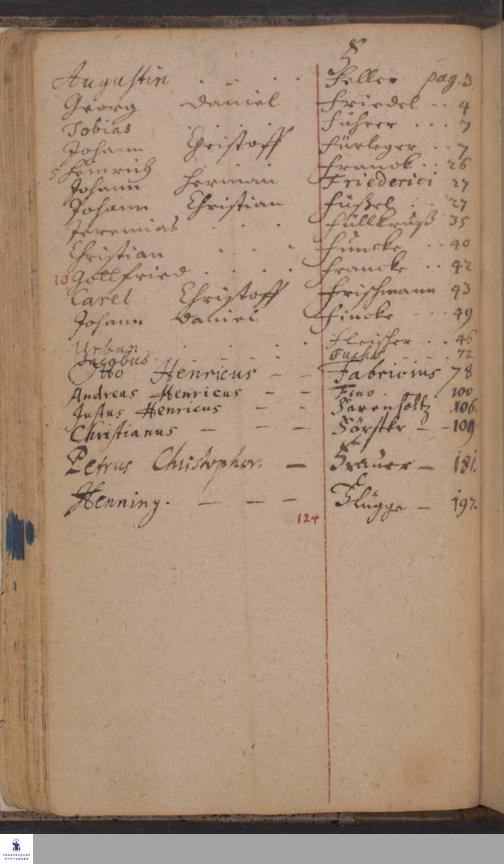 F
Augustin . . . . Feller pag. 3
Georg Daniel Friedel . . 4
Tobias . . . Führer . . . 7
Johann Christoff Fürleger . . 7
5 Heinrich . . . Franck . . 26
Johann Herman Friederici 27
Johann Christian Füßel . . 27
Jeremias . . . Füllkruß 35
Christian . . . Funcke . . 40
10 Gottfried . . . . Francke . . 42
Carel Christoff Frischmann 43
Johann Daniel Fincke . . 49
Urban . . . . Fleischer . . 46
Jacobus . . . Fuchs . . 72
Otto Henricus — — Fabricius 78
Andreas Henricus — — Fino . 100
Justus Henricus — — Farenholtz 106.
Christianus — — — Förster — — 109
Petrus Christophor. — Frauer — 181.
Henning. — — — Flügge — 197.
124
FRANCKESCHE
STIFTUNGEN